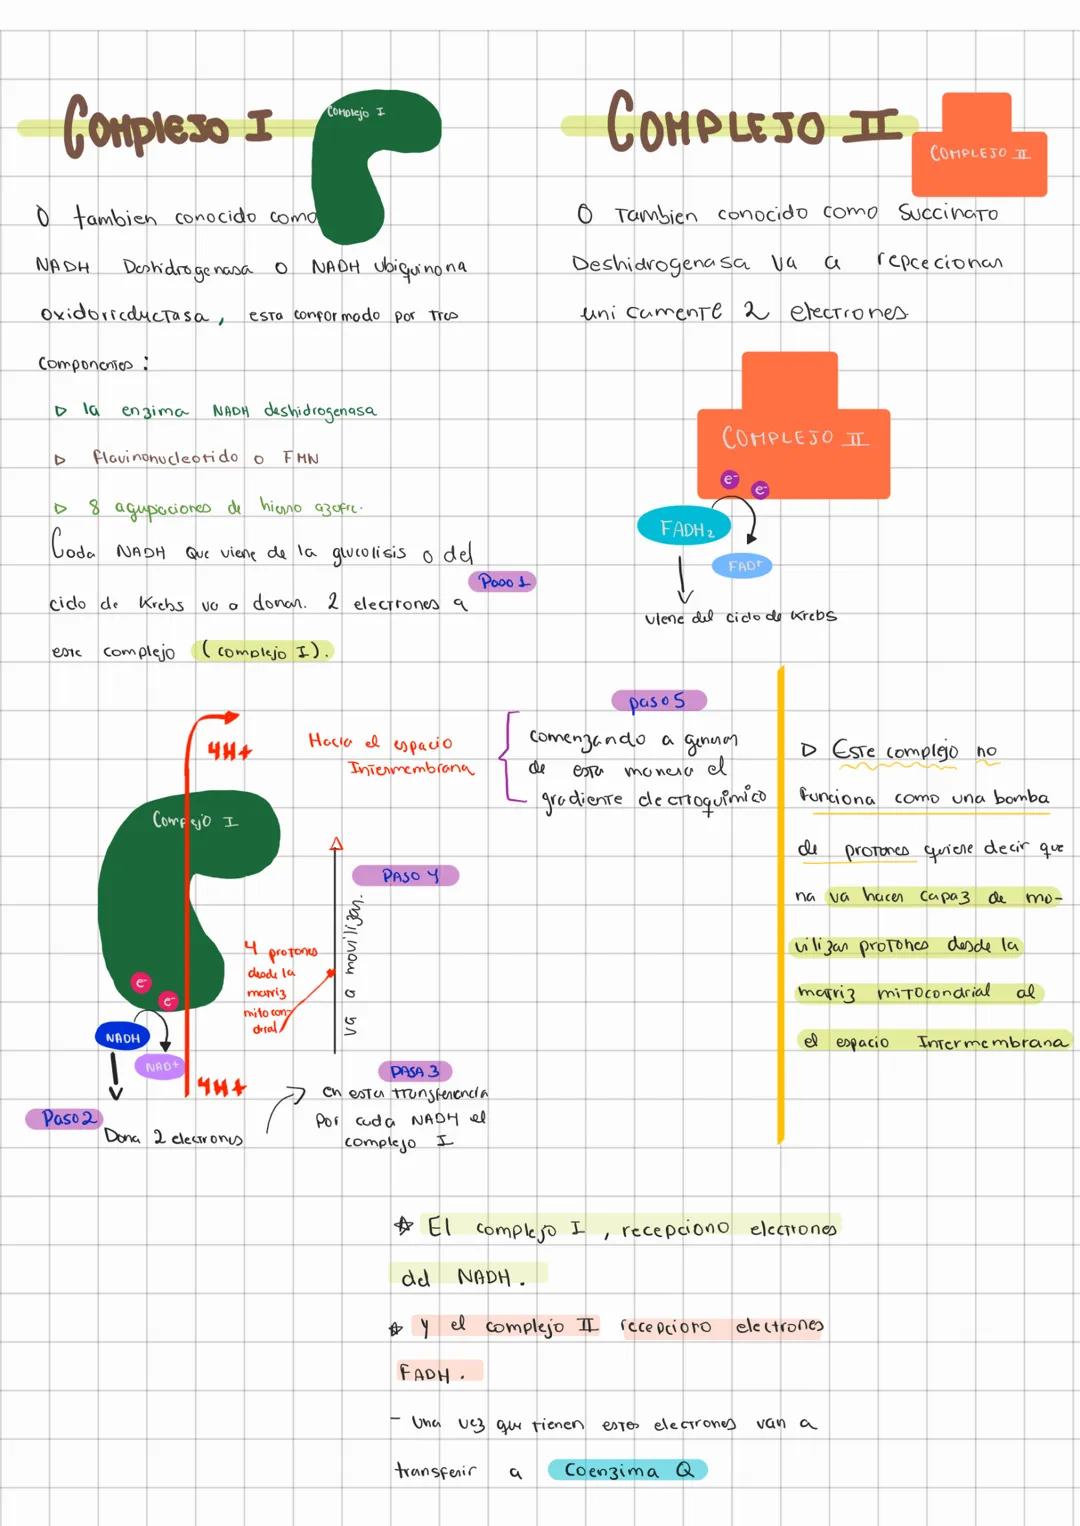 Complejo I
Complejo I
O tambien conocido como
NADH Deshidrogenasa o NADH Ubiquinona
oxidorreductasa, esta conformado por tres
componentes:
▷ la enzima NADH deshidrogenasa
▷ flavinonucleotido o FMN
▷ 8 agupaciones de hierro azofre.
Cada NADH que viene de la glucolisis o del
Paso 1
ciclo de Krebs va a donar. 2 electrones a
este complejo (complejo I).
COMPLEJO II
COMPLEJO II
O Tambien conocido como Succinato
Deshidrogenasa va a repcecionar
unicamente 2 electrones
COMPLEJO II
e-
e-
FADH2
FAD+
viene del ciclo de Krebs
4H+
Hacia el espacio
Intermembrana
paso 5
comenzando a generar
de esta manera el
gradiente electroquimico
Complejo I
PASO 4
va a movilizar.
4 protones
desde la
matriz
mitocon-
drial
e-
e-
NADH
NAD+
4H+
Paso 2
Dona 2 electrones
PASA 3
en esta transferencia
Por cada NADH el
complejo I
▷ Este complejo no
funciona como una bomba
de protones quiere decir que
na va hacer capaz de mo-
vilizar protones desde la
matriz mitocondrial al
el espacio Intermembrana
☆ El complejo I, recepciono electrones
del NADH.
☆ y el complejo II recepciono electrones
FADH.
- Una vez que tienen estos electrones van a
transferir a Coenzima Q